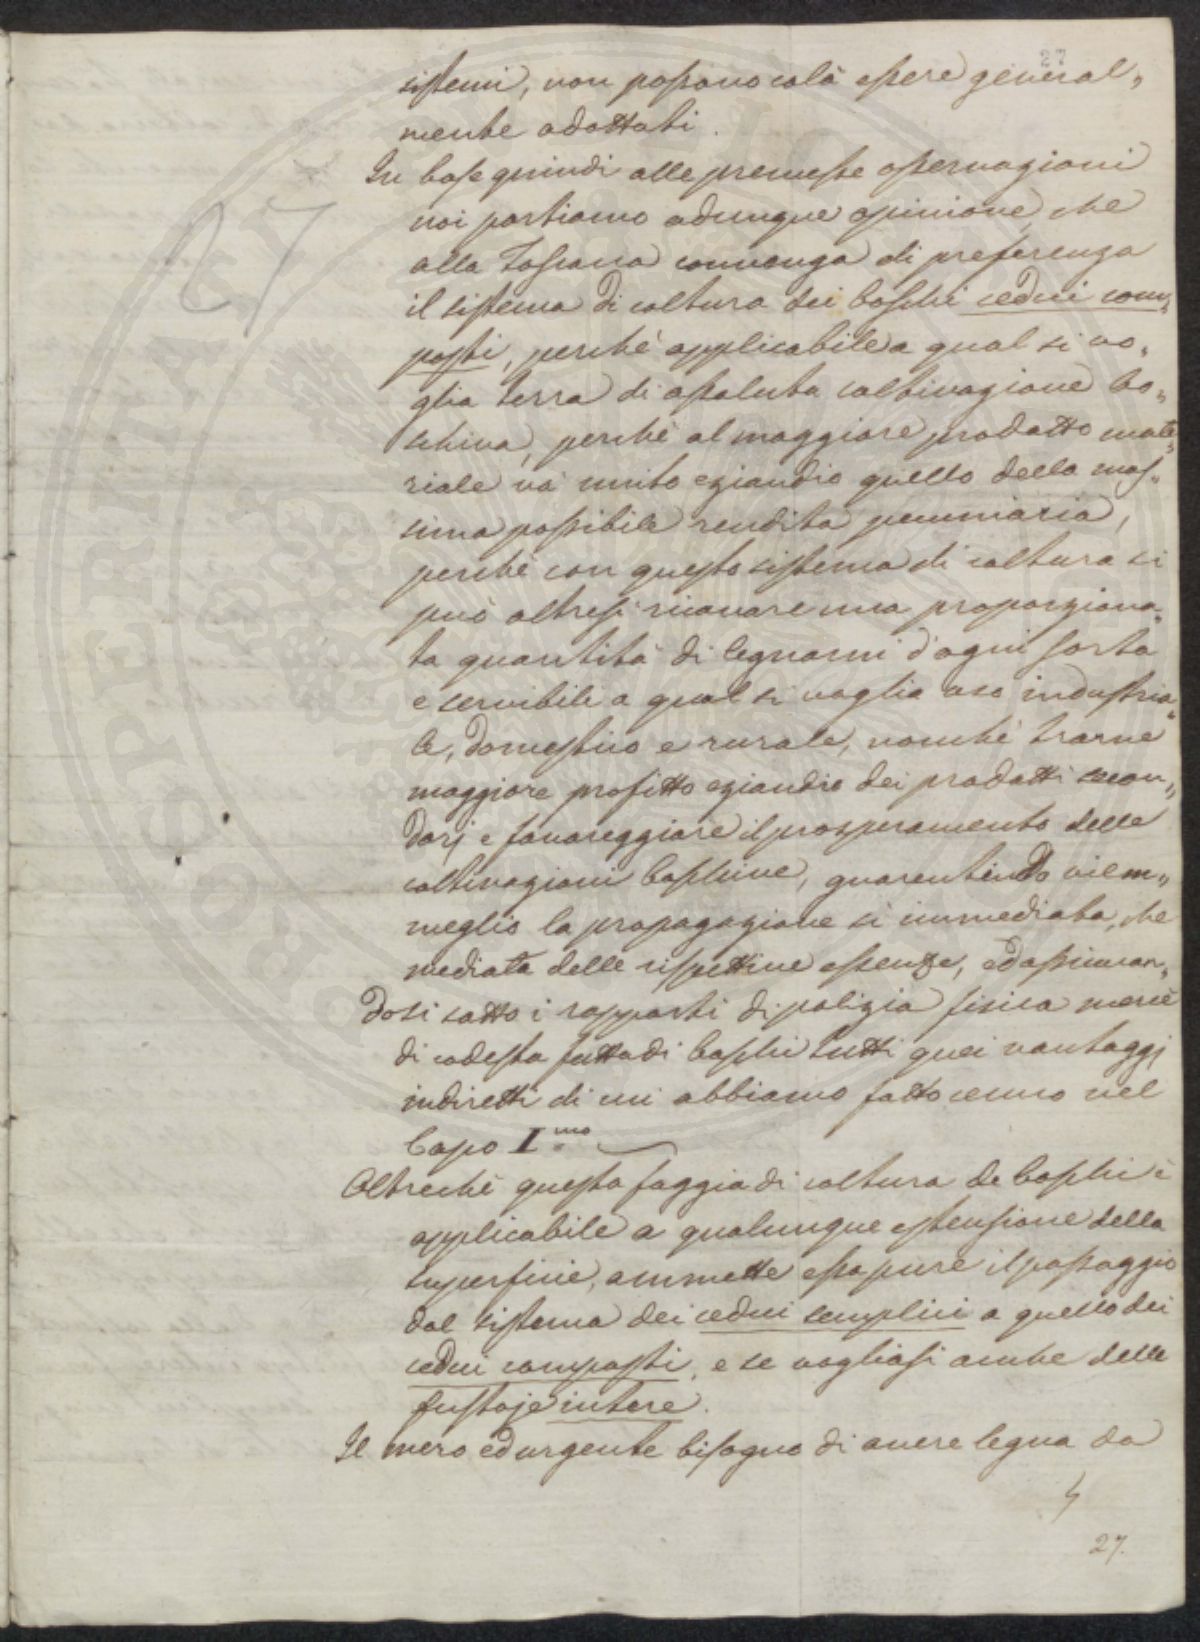 27
sistemi, non possono colà essere general„
mente adottati.
In base quindi alle premesse osservazioni
noi portiamo adunque opinione, che
alla Toscana convenga di preferenza
il sistema di coltura dei boschi cedui com„
posti, perchè applicabile a qual si vo„
glia terra di assoluta coltivazione bo„
schiva, perchè al maggiore prodotto mate„
riale va unito eziandio quello della mas„
sima possibile rendita pecuniaria,
perchè con questo sistema di coltura si
può altresì ricavare una proporziona„
ta quantità di legnami d'ogni sorta
e servibile a qual si voglia uso industria„
le, domestico e rurale, nonchè trarne
maggiore profitto eziandio dei prodotti secon„
darj e favoreggiare il prosperamento delle
coltivazioni boschive, guarentendo viem„
meglio la propagazione sì immediata, che
mediata delle rispettive essenze, ed assicuran„
dosi sotto i rapporti di polizia fisica mercè
di codesta fatta di boschi tutti quei vantaggj
indiretti di cui abbiamo fatto cenno nel
Capo I.mo
Oltrechè questa foggia di coltura de boschi è
applicabile a qualunque estensione della
superficie, ammette essa pure il passaggio
dal sistema dei cedui semplici a quello dei
cedui composti, e se vogliasi anche delle
fustaje intere.
Il mero ed urgente bisogno di avere legna da
27.
27
PROSPERITATI